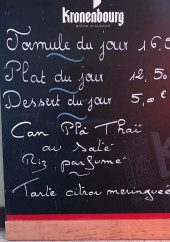 Kronenbourg
Formule du jour 16,5
Plat du jour 12,50
Dessert du jour 5,00€
Thaï
au saté
Riz parfumé
Tarte citron meringuée